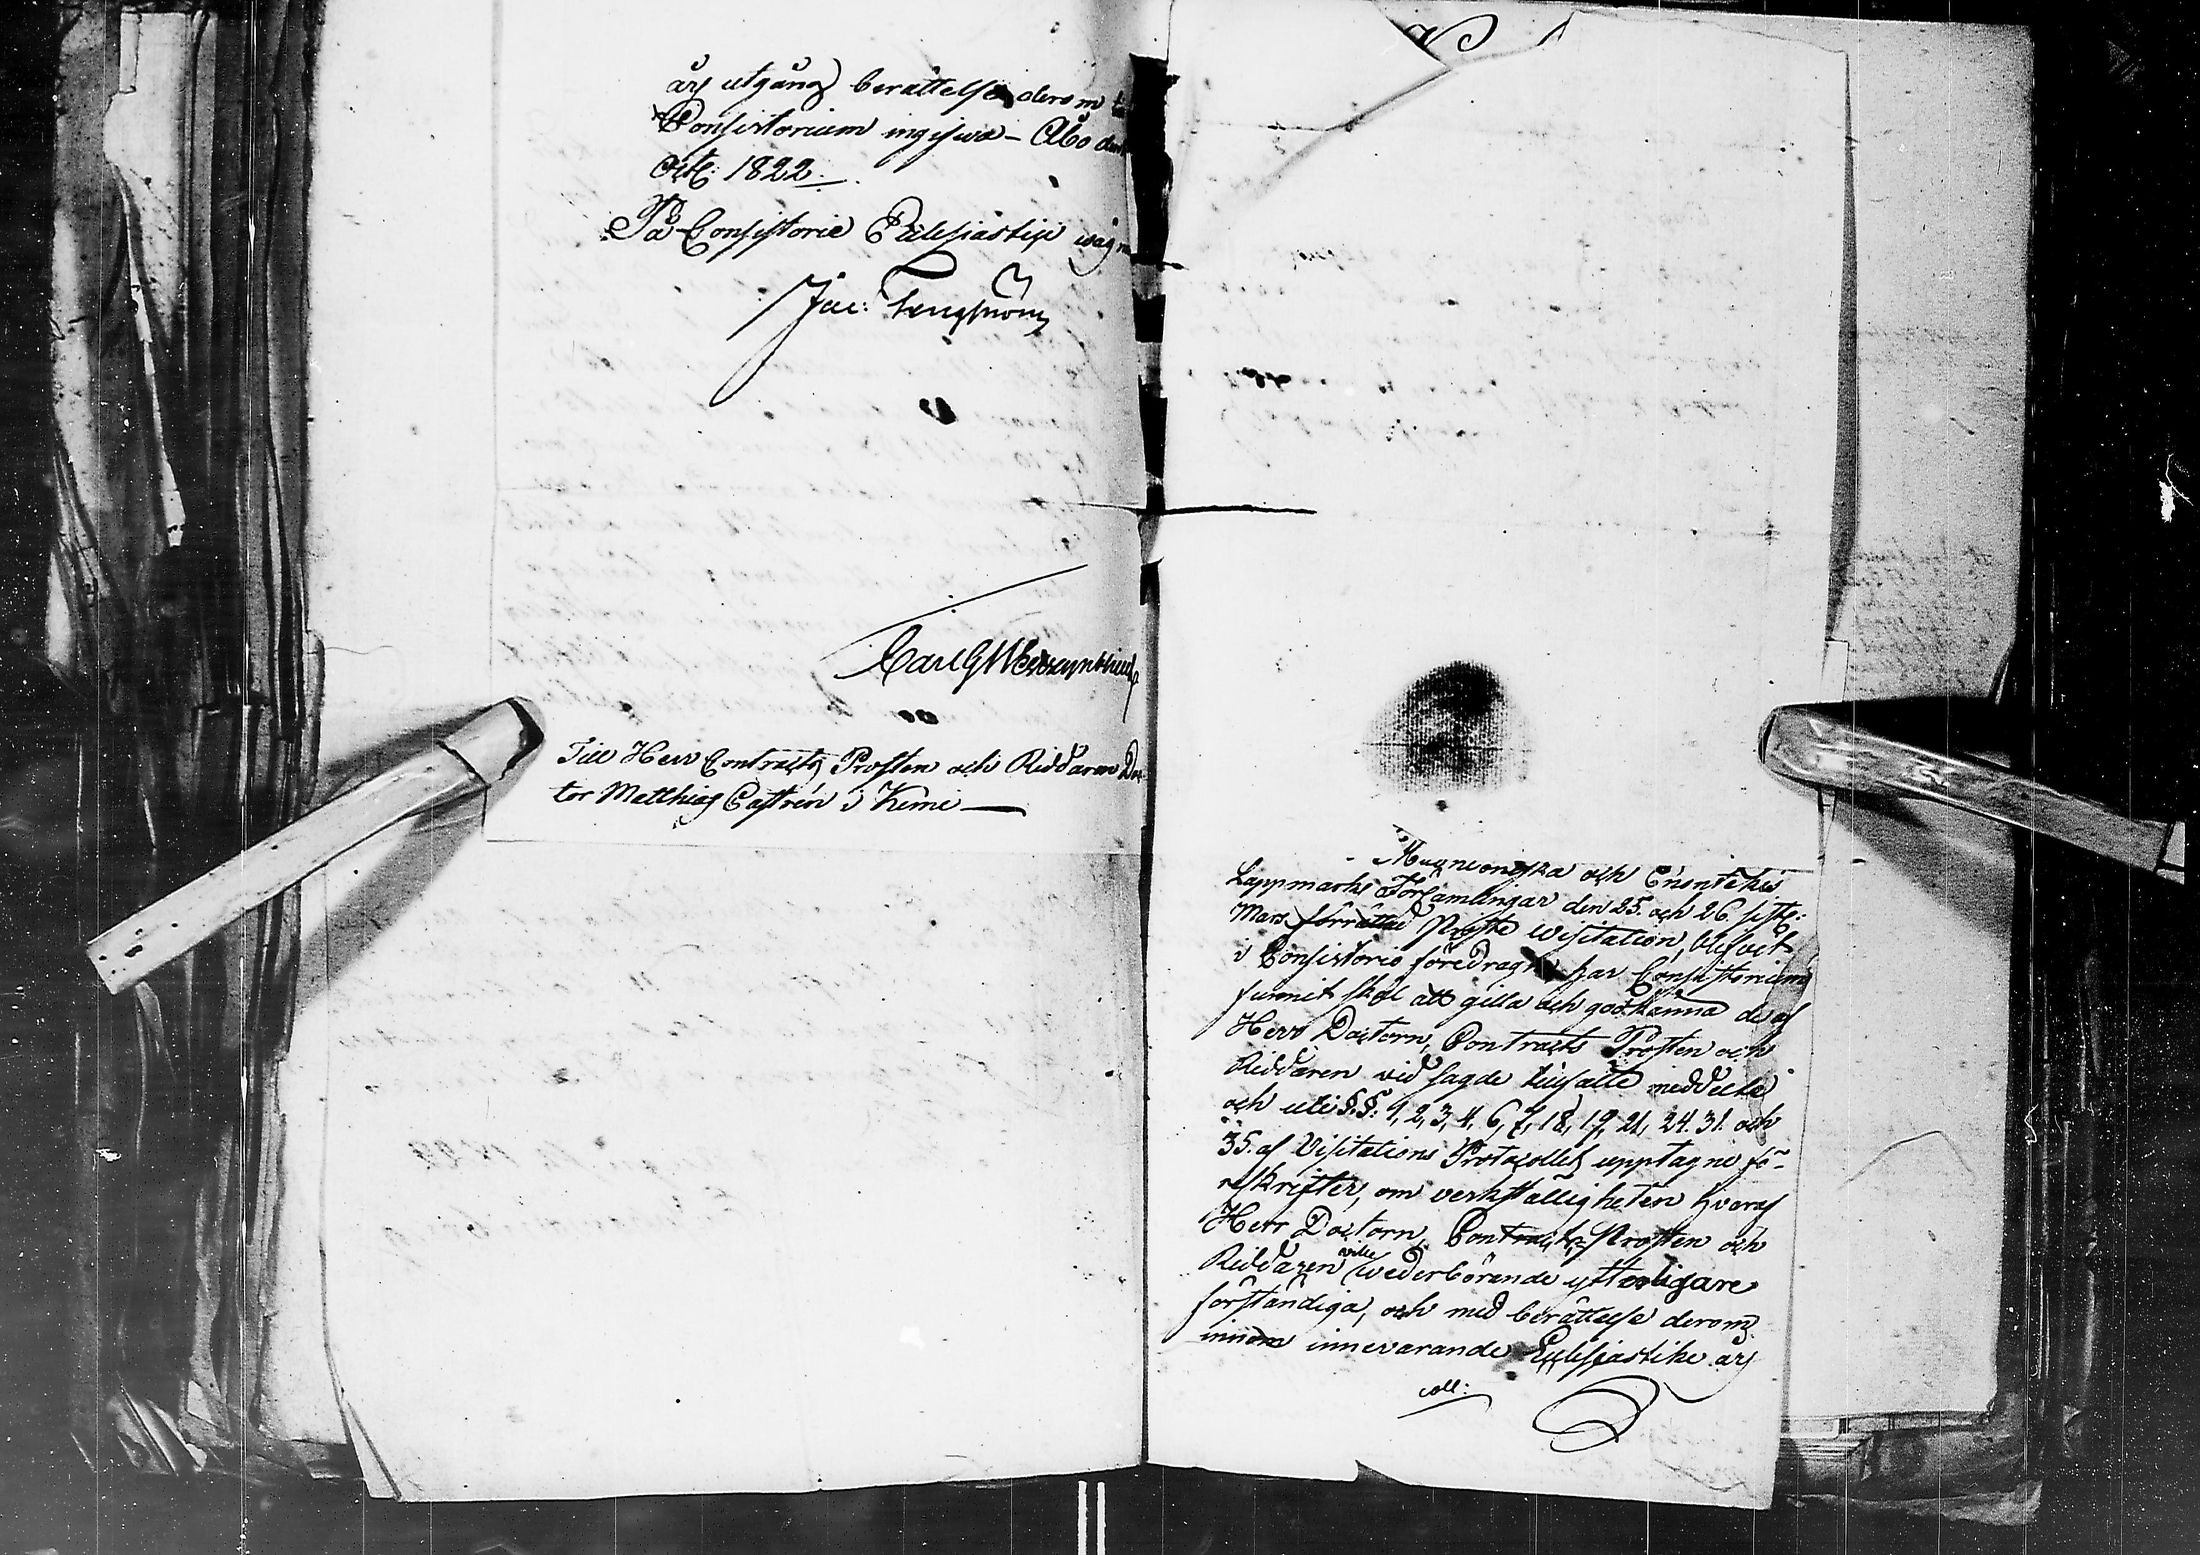 års utgång berättelse derom
Consistorium ingifwa – Åbo den
Octb: 1822.
På Consistorii Ecclesiastici wägnar
Jac: Tengström
Carl G
Till Herr Contracts Prosten och Riddaren Doc-
tor Matthias Castrén i Kemi
Muonioniska och Enontekis
Lappmarks Församlingar den 25. och 26. sistl:
Mars förrättad Proste wisitation, blifvit
i Consistorio föredraget har Consistorium
funnit skäl att gilla och godkänna de af
Herr Doctorn, Contracts Prosten och
Riddaren vid sagde tillfälle meddelte
och uti §.§. 1, 2, 3, 4, 6, 7, 18, 19, 21, 24. 31. och
35. af Visitations Protocollet upptagne fö-
reskrifter, om verkställigheten hvaraf
Herr Doctorn, Contracts Prosten och
Riddaren wille wederbörande ytterligare
förständiga, och med berättelse derom
innom innevarande Ecclesiastike års
coll: